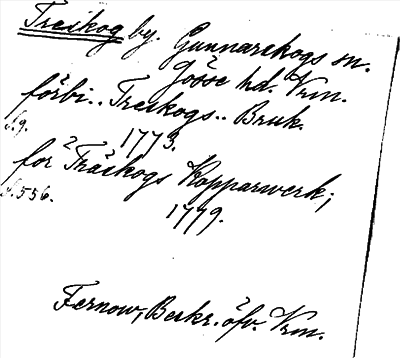 Treskog by. Gunnarskogs sn.
Gösse hd. Vrm.
förbi.. Treskogs.. Bruk.
S. 9.
1773.
for Träskogs Kopparwerk;
S. 556.
1779.
Fernow, Beskr. öfv. Vrm.